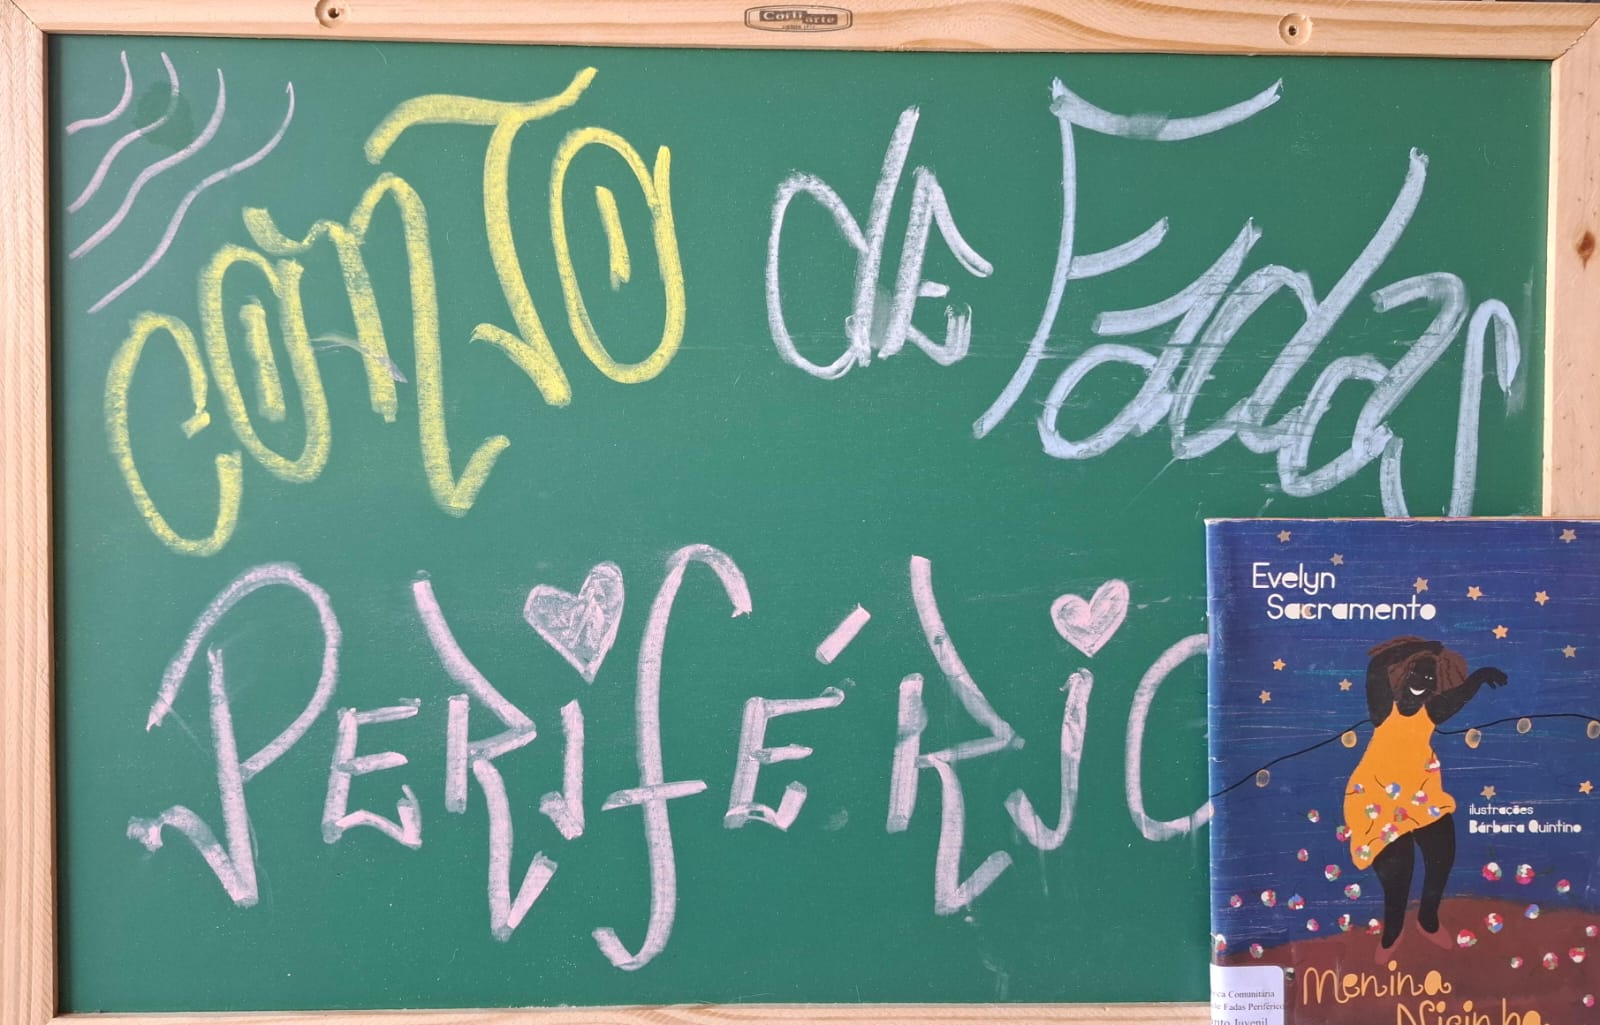 Corti arte
CONTO de Fadas
PERifÉRiC
Evelyn
Sacramento
ilustrações
Bárbara Quintino
Menina
Nicinha
eca Comunitária
de Fadas Periférico
nto Juvenil